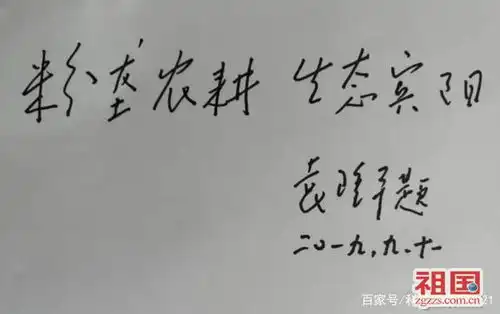 粉垄农耕 生态宾阳
袁隆平题
二〇一九.九.十一
祖国
zgzzs.com.cn
百家号/
21